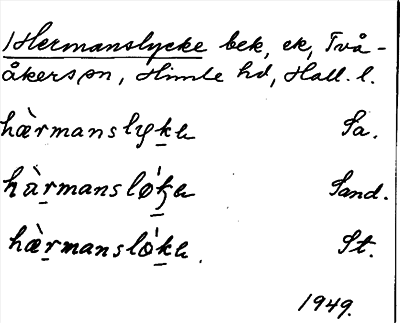 Hermanslycke bek, ek, Två-
åkers sn, Himle hd, Hall. l.
hæ̀rmanslyka Sa.
hàrmansløka Sand.
hæ̀rmansløka. St.
1949.